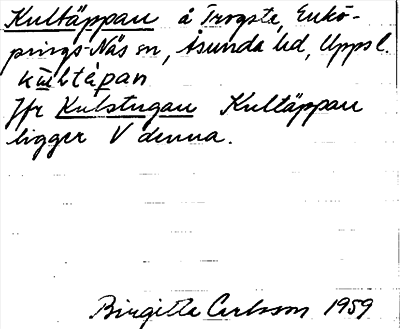 Kultäppan å Trogsta, Enkö-
pings-Näs sn, Åsunda hd, Uppl.
Jfr Kulstugan Kultäppan
ligger V denna.
Birgitta Carlsson 1959